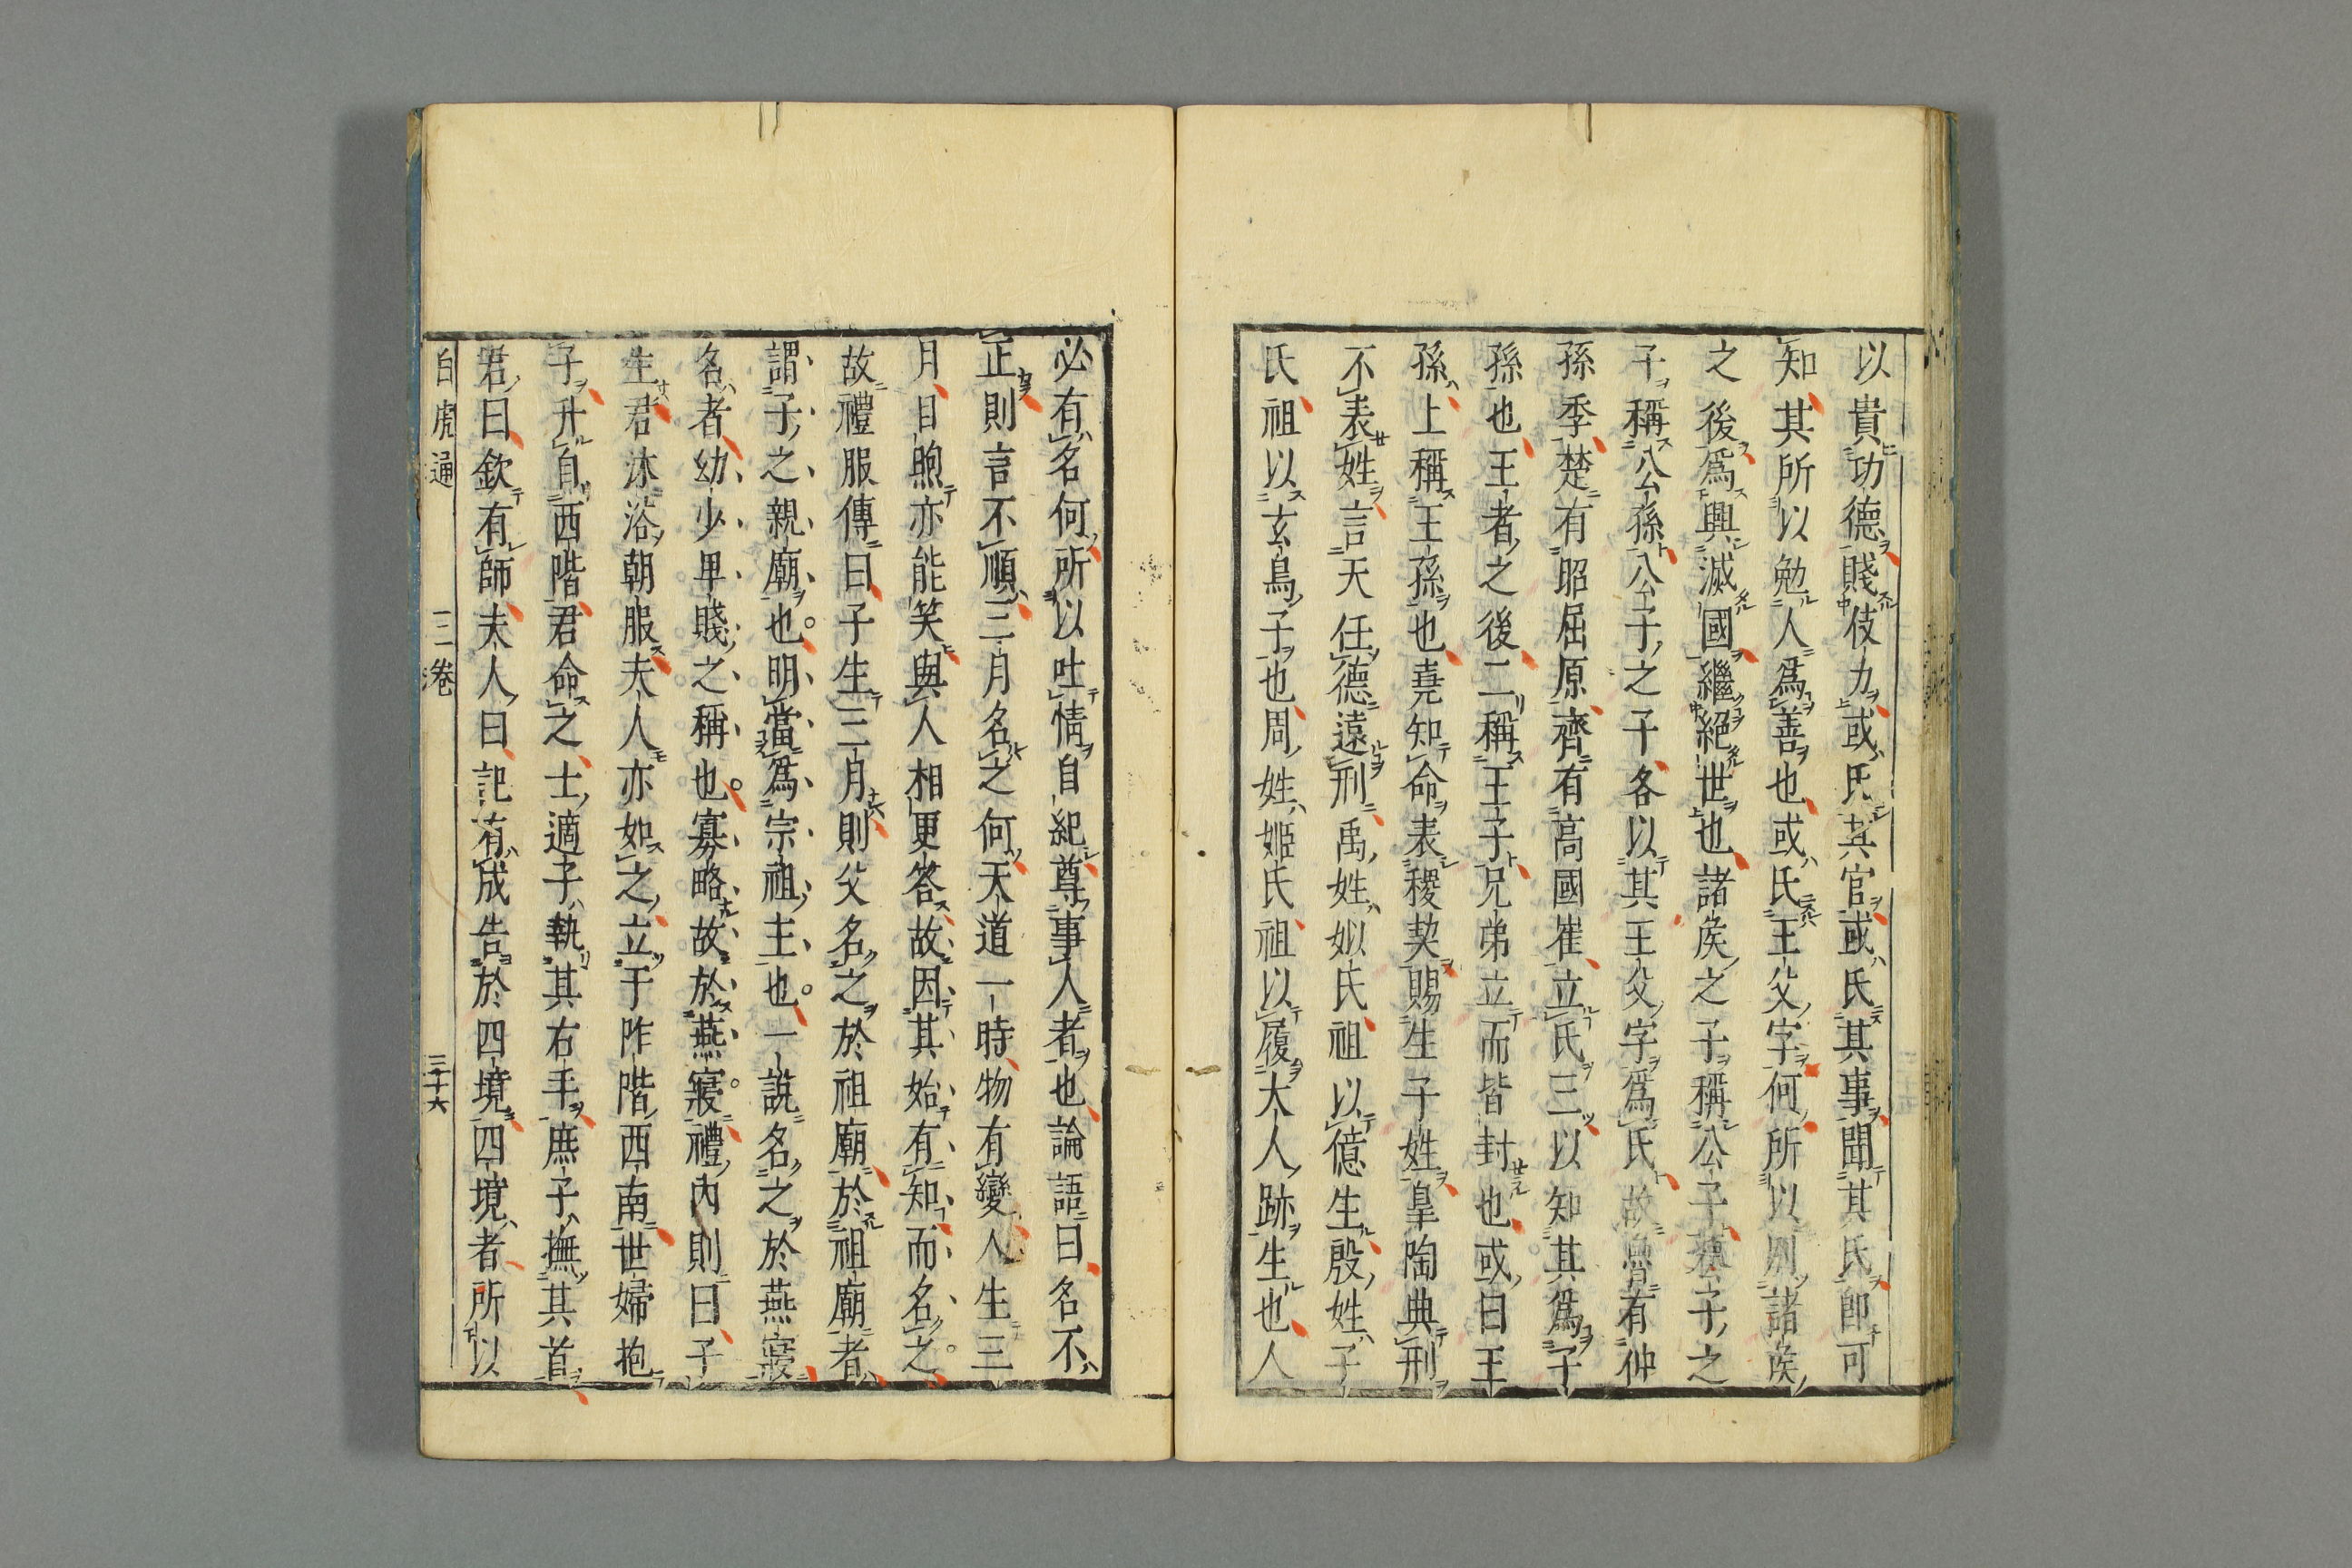 以貴功德賤伎力或氏其官或氏其事聞其氏即可
知其所以勉人爲善也或氏王父字何所以別諸侯
之後爲興滅國繼絕世也諸侯之子稱公子公子之
子稱公孫公子之子各以其王父字爲氏故魯有仲
孫季楚有昭屈原齊有高國崔立氏三以知其爲子
孫也王者之後二稱王子兄弟立而皆封也或曰王
孫上稱王孫也堯知命表稷契賜生子姓皐陶典刑
不表姓言天任德遠刑禹姓姒氏祖以億生殷姓子
氏祖以玄鳥子也周姓姬氏祖以履大人跡生也人
必有名何所以吐情自紀尊事人者也論語曰名不
正則言不順三月名之何天道一時物有變人生三
月目煦亦能笑與人相更答故因其始有知而名之
故禮服傳曰子生三月則父名之於祖廟於祖廟者
謂子之親廟也明當爲宗祖主也一說名之於燕寢
名者幼少卑賤之稱也寡略故於燕寢禮內則曰子
生君沐浴朝服夫人亦如之立于阼階西南世婦抱
子升自西階君命之士適子執其右手庶子撫其首
君曰欽有師夫人曰記有成告於四境四境者所以
白虎通 三卷 三十六